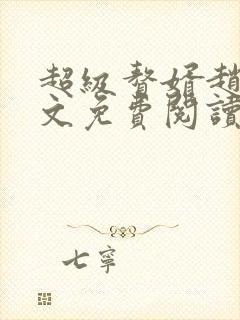 超級贅婿趙
文免費閱讀
七寧